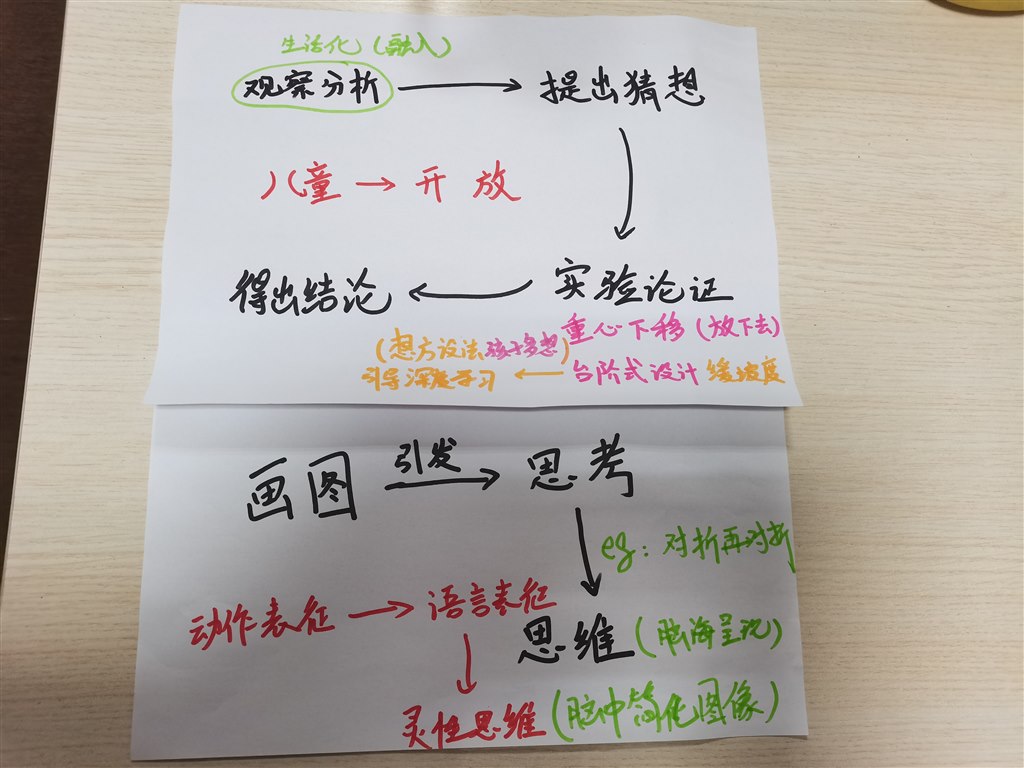 生活化（融入）
观察分析 → 提出猜想
儿童 → 开放
得出结论 ← 实验论证
重心下移（放下去）
（想方设法孩子多想）
引导深度学习 ← 台阶式设计 缓坡度
画图 引发 → 思考
eg：对折再对折
动作表征 → 语言表征
思维（脑海呈现）
灵性思维（脑中简化图像）